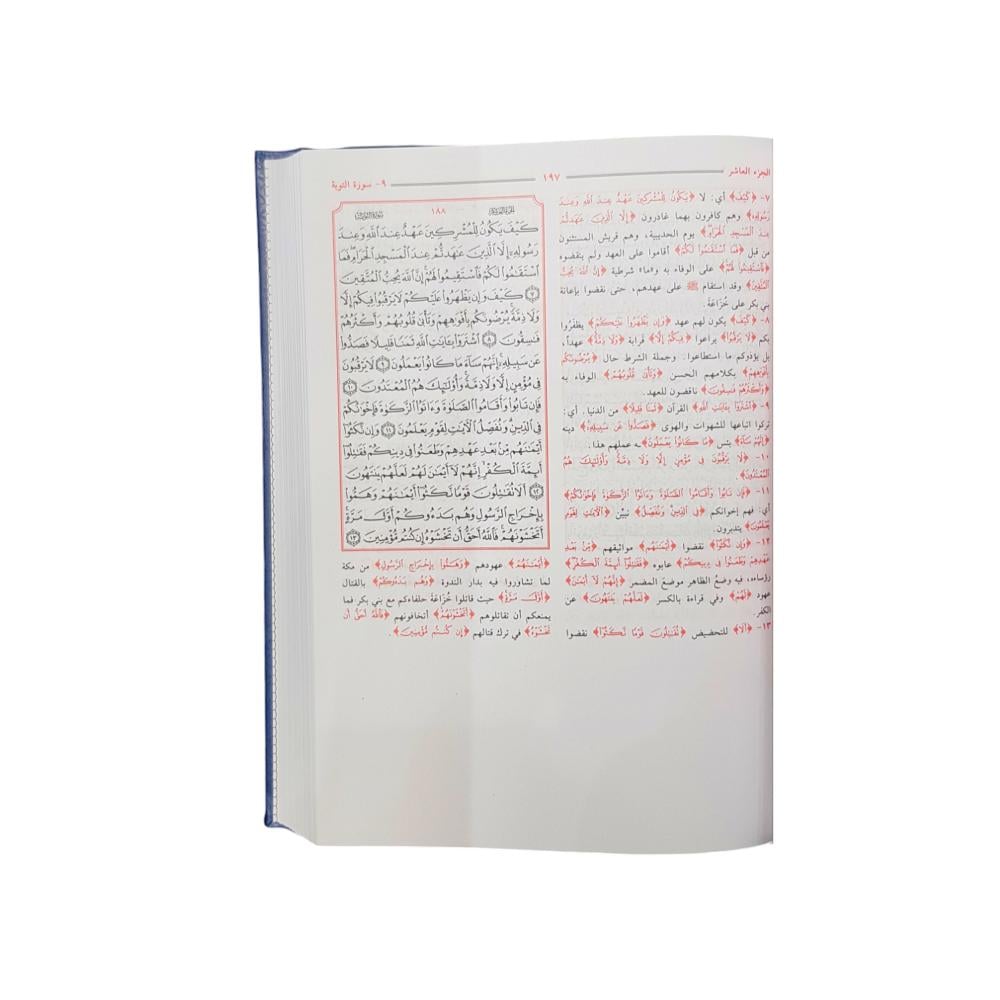 الجزء العاشر ١٩٧ ٩- سورة التوبة
٧- ﴿كَيْفَ﴾ أي: لا ﴿يَكُونُ لِلْمُشْرِكِينَ عَهْدٌ عِندَ اللَّهِ وَعِندَ
رَسُولِهِ﴾ وهم كافرون بهما غادرون ﴿إِلَّا الَّذِينَ عَٰهَدتُّمْ
عِندَ الْمَسْجِدِ الْحَرَامِ﴾ يوم الحديبية، وهم قريش المستثنون
من قبل ﴿فَمَا اسْتَقَٰمُوا لَكُمْ﴾ أقاموا على العهد ولم ينقضوه
﴿فَاسْتَقِيمُوا لَهُمْ﴾ على الوفاء به و«ما» شرطية ﴿إِنَّ اللَّهَ يُحِبُّ
الْمُتَّقِينَ﴾ وقد استقام ﷺ على عهدهم، حتى نقضوا بإعانة
بني بكر على خُزَاعَةَ.
٨- ﴿كَيْفَ﴾ يكون لهم عهد ﴿وَإِن يَظْهَرُوا عَلَيْكُمْ﴾ يظفَرُوا
بكم ﴿لَا يَرْقُبُوا﴾ يراعوا ﴿فِيكُمْ إِلًّا﴾ قرابة ﴿وَلَا ذِمَّةً﴾ عهداً،
بل يؤذوكم ما استطاعوا. وجملة الشرط حال ﴿يُرْضُونَكُم
بِأَفْوَٰهِهِمْ﴾ بكلامهم الحسن ﴿وَتَأْبَىٰ قُلُوبُهُمْ﴾ الوفاء به
﴿وَأَكْثَرُهُمْ فَٰسِقُونَ﴾ ناقضون للعهد.
٩- ﴿اشْتَرَوْا بِـَٔايَٰتِ اللَّهِ﴾ القرآن ﴿ثَمَنًا قَلِيلًا﴾ من الدنيا. أي:
تركوا اتباعها للشهوات والهوى ﴿فَصَدُّوا عَن سَبِيلِهِ﴾ دينه
﴿إِنَّهُمْ سَآءَ﴾ بئس ﴿مَا كَانُوا يَعْمَلُونَ﴾ـه عملهم هذا.
١٠- ﴿لَا يَرْقُبُونَ فِي مُؤْمِنٍ إِلًّا وَلَا ذِمَّةً وَأُولَٰئِكَ هُمُ
الْمُعْتَدُونَ﴾.
١١- ﴿فَإِن تَابُوا وَأَقَامُوا الصَّلَوٰةَ وَءَاتَوُا الزَّكَوٰةَ فَإِخْوَٰنُكُمْ﴾
أي: فهم إخوانكم ﴿فِي الدِّينِ وَنُفَصِّلُ﴾ نبيِّن ﴿الْـَٔايَٰتِ لِقَوْمٍ
يَعْلَمُونَ﴾ يتدبرون.
١٢- ﴿وَإِن نَّكَثُوا﴾ نقضوا ﴿أَيْمَٰنَهُم﴾ مواثيقهم ﴿مِّن بَعْدِ
عَهْدِهِمْ وَطَعَنُوا فِي دِينِكُمْ﴾ عابوه ﴿فَقَٰتِلُوا أَئِمَّةَ الْكُفْرِ﴾
رؤساءه، فيه وضعُ الظاهر موضعَ المضمر ﴿إِنَّهُمْ لَا أَيْمَٰنَ﴾
عهود ﴿لَهُمْ﴾ وفي قراءة بالكسر ﴿لَعَلَّهُمْ يَنتَهُونَ﴾ عن
الكفر.
١٣- ﴿أَلَا﴾ للتحضيض ﴿تُقَٰتِلُونَ قَوْمًا نَّكَثُوا﴾ نقضوا
١٨٨
كَيْفَ يَكُونُ لِلْمُشْرِكِينَ عَهْدٌ عِندَ اللَّهِ وَعِندَ
رَسُولِهِ إِلَّا الَّذِينَ عَٰهَدتُّمْ عِندَ الْمَسْجِدِ الْحَرَامِ فَمَا
اسْتَقَٰمُوا لَكُمْ فَاسْتَقِيمُوا لَهُمْ إِنَّ اللَّهَ يُحِبُّ الْمُتَّقِينَ
٧ كَيْفَ وَإِن يَظْهَرُوا عَلَيْكُمْ لَا يَرْقُبُوا فِيكُمْ إِلًّا
وَلَا ذِمَّةً يُرْضُونَكُم بِأَفْوَٰهِهِمْ وَتَأْبَىٰ قُلُوبُهُمْ وَأَكْثَرُهُمْ
فَٰسِقُونَ ٨ اشْتَرَوْا بِـَٔايَٰتِ اللَّهِ ثَمَنًا قَلِيلًا فَصَدُّوا
عَن سَبِيلِهِ إِنَّهُمْ سَآءَ مَا كَانُوا يَعْمَلُونَ ٩ لَا يَرْقُبُونَ
فِي مُؤْمِنٍ إِلًّا وَلَا ذِمَّةً وَأُولَٰئِكَ هُمُ الْمُعْتَدُونَ ١٠
فَإِن تَابُوا وَأَقَامُوا الصَّلَوٰةَ وَءَاتَوُا الزَّكَوٰةَ فَإِخْوَٰنُكُمْ
فِي الدِّينِ وَنُفَصِّلُ الْـَٔايَٰتِ لِقَوْمٍ يَعْلَمُونَ ١١ وَإِن نَّكَثُوا
أَيْمَٰنَهُم مِّن بَعْدِ عَهْدِهِمْ وَطَعَنُوا فِي دِينِكُمْ فَقَٰتِلُوا
أَئِمَّةَ الْكُفْرِ إِنَّهُمْ لَا أَيْمَٰنَ لَهُمْ لَعَلَّهُمْ يَنتَهُونَ
١٢ أَلَا تُقَٰتِلُونَ قَوْمًا نَّكَثُوا أَيْمَٰنَهُمْ وَهَمُّوا
بِإِخْرَاجِ الرَّسُولِ وَهُم بَدَءُوكُمْ أَوَّلَ مَرَّةٍ
أَتَخْشَوْنَهُمْ فَاللَّهُ أَحَقُّ أَن تَخْشَوْهُ إِن كُنتُم مُّؤْمِنِينَ ١٣
﴿أَيْمَٰنَهُمْ﴾ عهودهم ﴿وَهَمُّوا بِإِخْرَاجِ الرَّسُولِ﴾ من مكة
لما تشاوروا فيه بدار الندوة ﴿وَهُم بَدَءُوكُمْ﴾ بالقتال
﴿أَوَّلَ مَرَّةٍ﴾ حيث قاتلوا خُزَاعَةَ حلفاءكم مع بني بكر فما
يمنعكم أن تقاتلوهم ﴿أَتَخْشَوْنَهُمْ﴾ أتخافونهم ﴿فَاللَّهُ أَحَقُّ أَن
تَخْشَوْهُ﴾ في ترك قتالهم ﴿إِن كُنتُم مُّؤْمِنِينَ﴾.